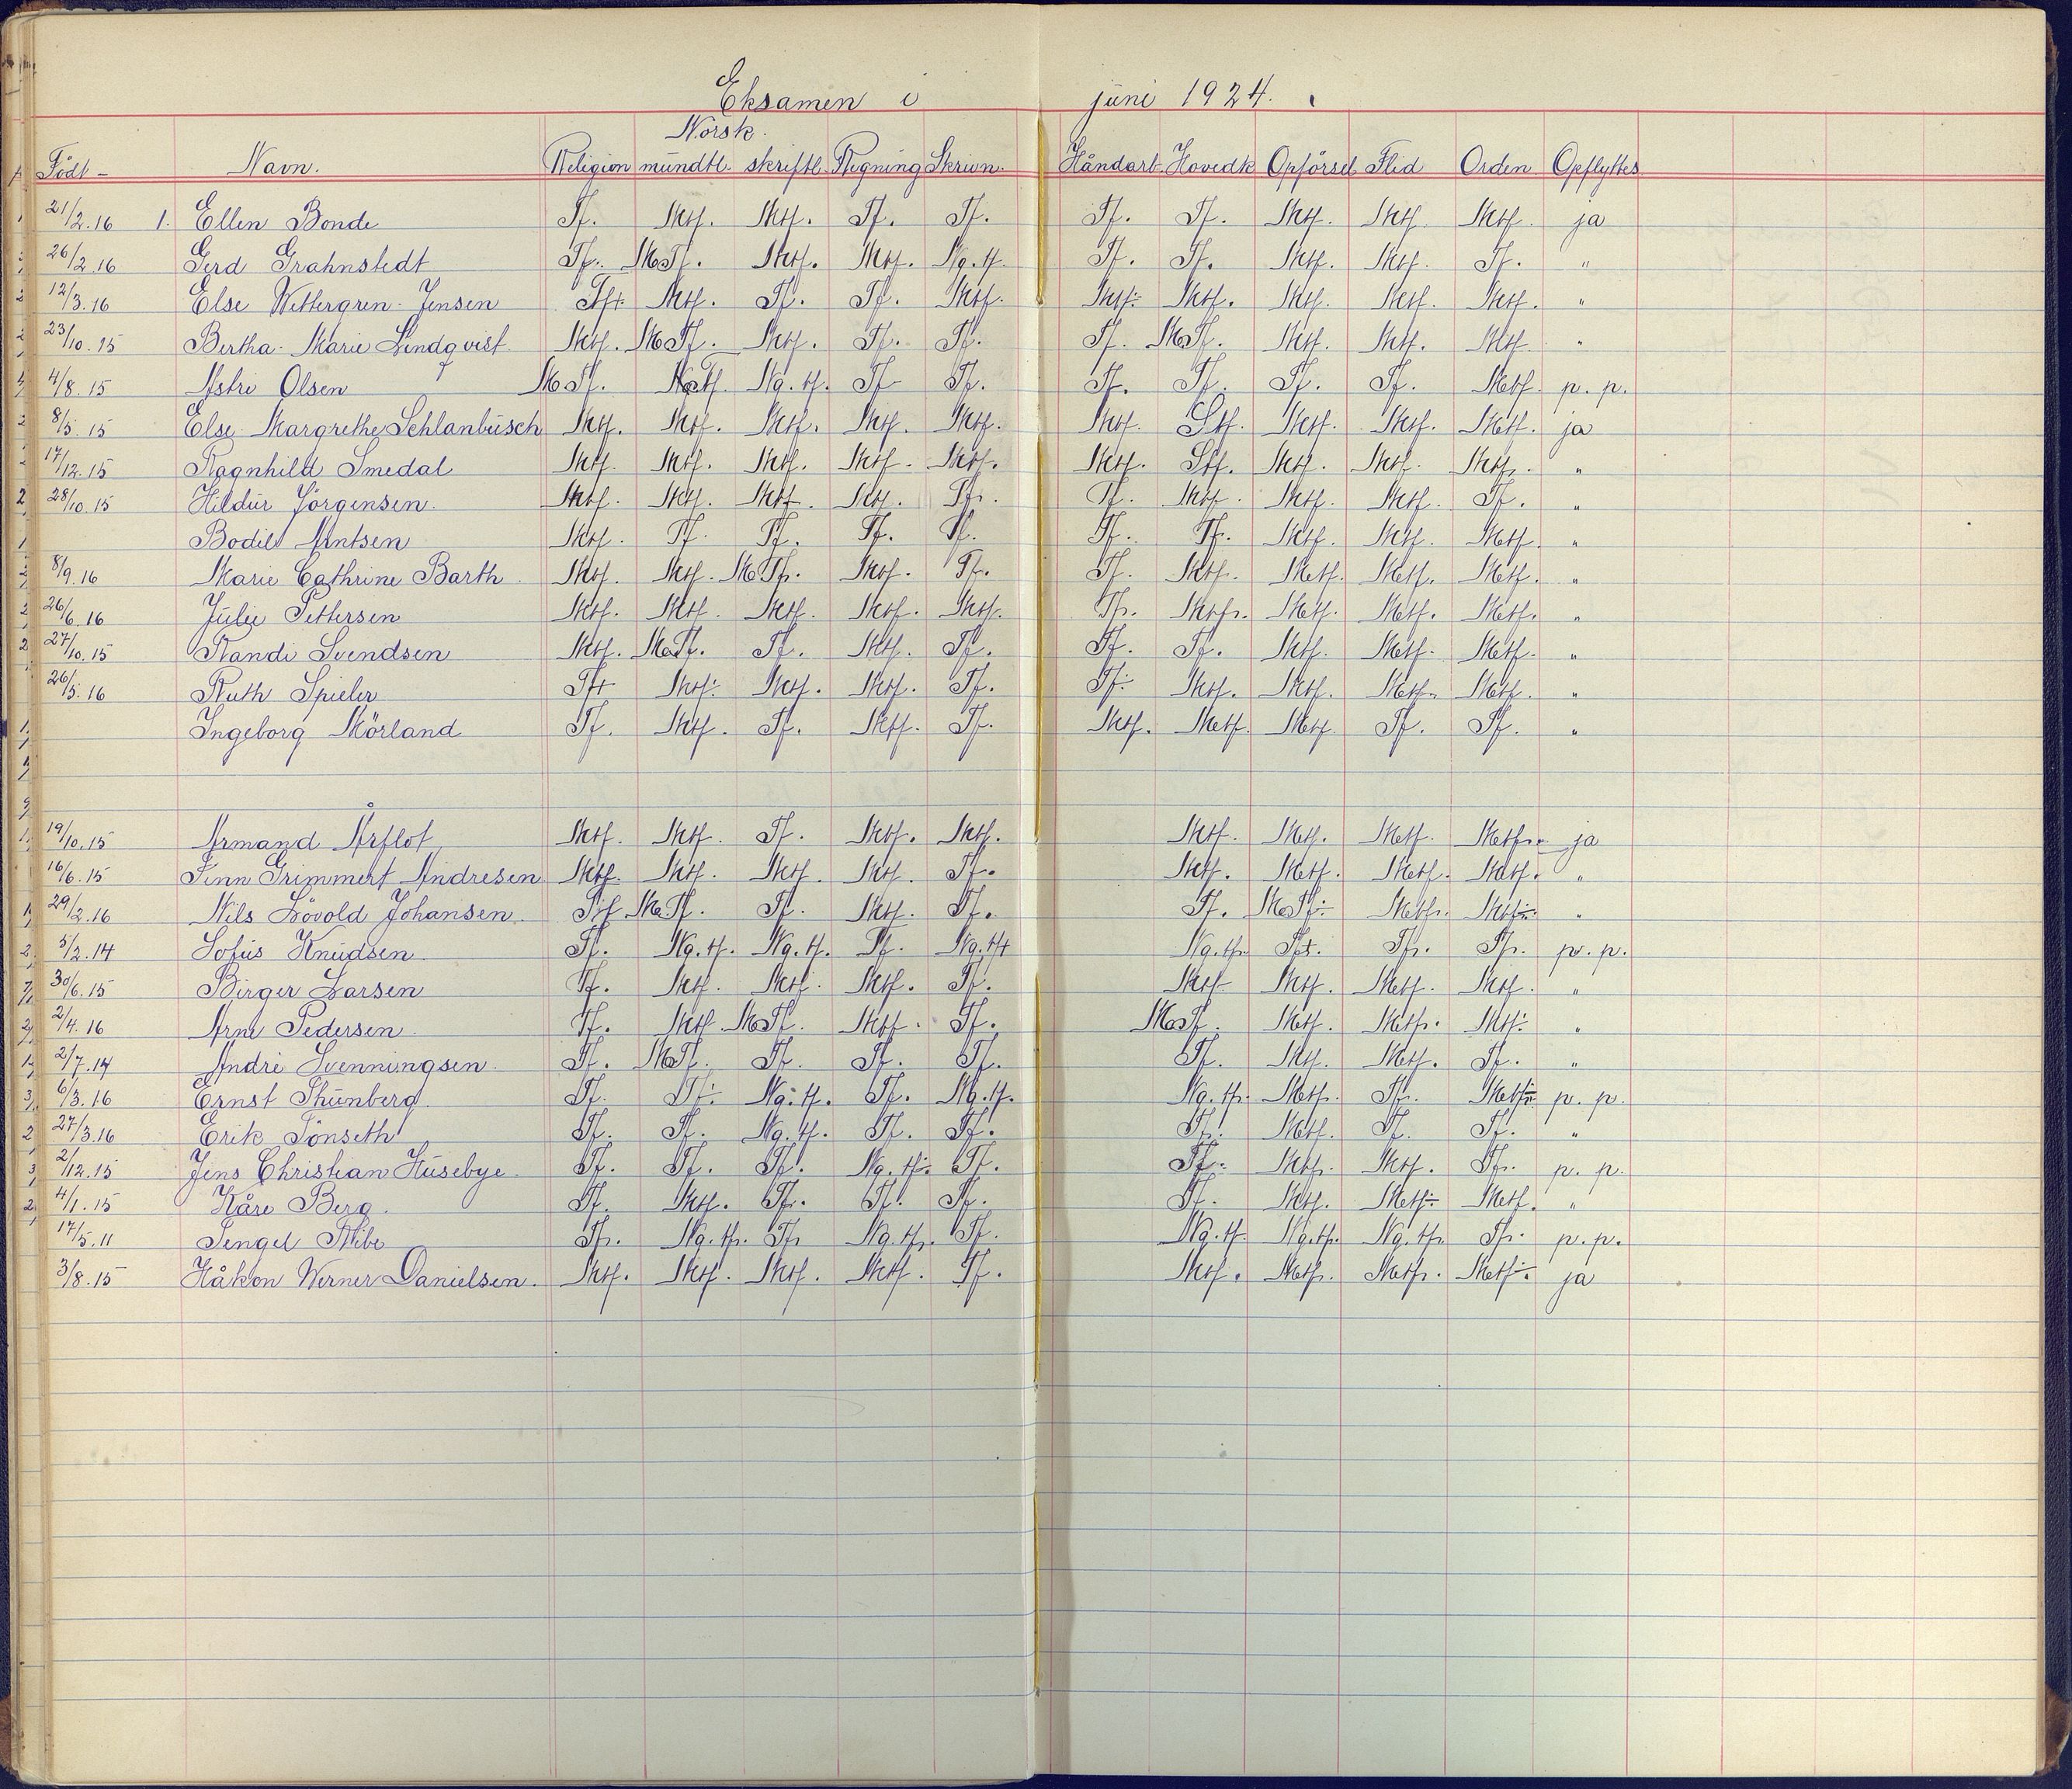 Eksamen i juni 1924.
Norsk.
Födt - Navn. Religion mündtl. skriftl. Regning Skrivn. Håndarb. Hovedk Opförsel Flid Orden Opflyttes
21/2.16 1. Ellen Bonde Tf. Mtf. Mtf. Tf. Tf. Tf. Tf. Mtf. Mtf. Mtf. ja
26/2.16 Gerd Grahnstedt Tf. MoTf. Mtf. Mtf. Ng.tf. Tf. Tf. Mtf. Mtf. Tf. "
12/3.16 Else Wettergren-Jensen Mtf. Tf. Tf. Mtf. Mtf. Mtf. Mtf. Mtf. Mtf. "
23/10.15 Bertha-Marie Lindqvist Mtf. MoTf. Mtf. Tf. Tf. Tf. MoTf. Mtf. Mtf. Mtf. "
4/8.15 Astri Olsen MoTf. Ng.tf. Tf Tf. Tf. Tf. Tf. Tf. Metf. p.p.
8/5.15 Else Margrethe Schlanbüsch Mtf. Mtf. Mtf. Mtf. Mtf. Mtf. Stf. Mtf. Mtf. Metf. ja
17/12.15 Ragnhild Smedal Mtf. Mtf. Mtf. Mtf. Mtf. Mtf. Stf. Mtf. Mtf. Mtf. "
28/10.15 Hildur Jörgensen Mtf. Mtf. Mtf. Mtf. Tf. Tf. Mtf. Mtf. Mtf. Tf. "
Bodil Arntsen Mtf. Tf. Tf. Tf. Tf. Tf. Tf. Mtf. Mtf. Metf. "
8/9.16 Marie Cathrine Barth Mtf. Mtf. MoTf. Mtf. Tf. Tf. Mtf. Metf. Metf. Metf. "
26/6.16 Julie Pettersen Mtf. Mtf. Mtf. Mtf. Mtf. Tf. Mtf. Metf. Metf. Metf. "
27/10.15 Randi Svendsen Mtf. MoTf. Tf. Mtf. Tf. Tf. Tf. Mtf. Metf. Metf. "
26/5.16 Ruth Spieler Tf+ Mtf. Mtf. Mtf. Tf. Tf. Mtf. Mtf. Metf. Metf. "
Ingeborg Mörland Tf. Mtf. Tf. Mtf. Tf. Mtf. Metf. Metf Tf. Tf. "
19/10.15 Armand Årflot Mtf. Mtf. Tf. Mtf. Mtf. Mtf. Metf. Metf. Metf. ja
16/6.15 Finn Grimmert Andresen Mtf. Mtf. Mtf. Mtf. Tf. Mtf. Metf. Metf. Metf. "
29/2.16 Nils Lövold Johansen MoTf. Tf. Mtf. Tf. Tf. MoTf. Metf. Metf. "
5/2.14 Sofus Knudsen Tf. Ng.tf. Ng.tf. Tf. Ng.tf+ Ng.tf. Tf. Tf. Tf. p.p.
30/6.15 Birger Larsen Tf. Mtf. Mtf. Mtf. Tf. Mtf Mtf. Metf. Mtf. "
2/4.16 Arne Pedersen Tf. Mtf. MoTf. Mtf. Tf. MoTf. Metf. Metf. Mtf. "
2/7.14 André Svenningsen Tf. MoTf. Tf. Tf. Tf. Tf. Mtf. Metf. Tf. "
6/3.16 Ernst Thunberg Tf. Tf. Ng.tf. Tf. Ng.tf. Ng.tf. Metf. Tf. Metf. p.p.
27/3.16 Erik Tönseth Tf. Tf. Ng.tf. Tf. Tf. Tf. Metf. Tf. Tf. "
2/12.15 Jens Christian Husebye Tf. Tf. Tf. Ng.tf. Tf. Tf. Mtf. Mtf. Tf. p.p.
4/1.15 Kåre Berg. Tf. Mtf. Tf. Tf. Tf. Tf. Mtf. Metf. Metf. "
17/5.11 Tengel Ribe Tf. Ng.tf. Tf Ng.tf. Tf. Ng.tf. Ng.tf. Ng.tf. Tf. p.p.
3/8.15 Håkon Werner Danielsen. Mtf. Mtf. Mtf. Mtf. Tf. Mtf. Metf. Metf. Metf. ja